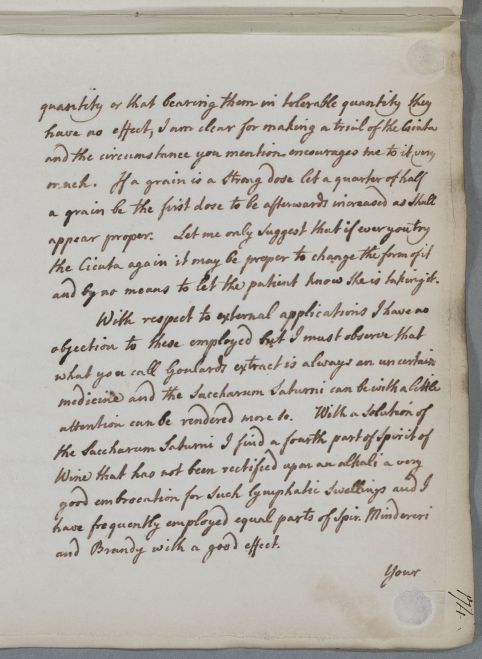 quantity or that bearing them in tolerable quantity they
have no effect, I am clear for making a trial of the Cicuta
and the circumstance you mention encourages me to it very
much. If a grain is a Strong dose let a quarter of half
a grain be the first dose to be afterwards increased as Shall
appear proper. Let me only Suggest that if ever you try
the Cicuta again it may be proper to change the form of it
and by no means to let the patient know She is taking it.
With respect to external applications I have no
objection to these employed but I must observe that
what you call Goulards extract is always an uncertain
medicine and the Saccharum Saturni can be with a little
attention can be rendered more so. With a Solution of
the Saccharum Saturni I find a fourth part of Spirit of
Wine that has not been rectified upon an alkali a very
good embrocation for Such lymphatic Swellings and I
have frequently employed equal parts of Spir. Mindereri
and Brandy with a good effect.
Your
174